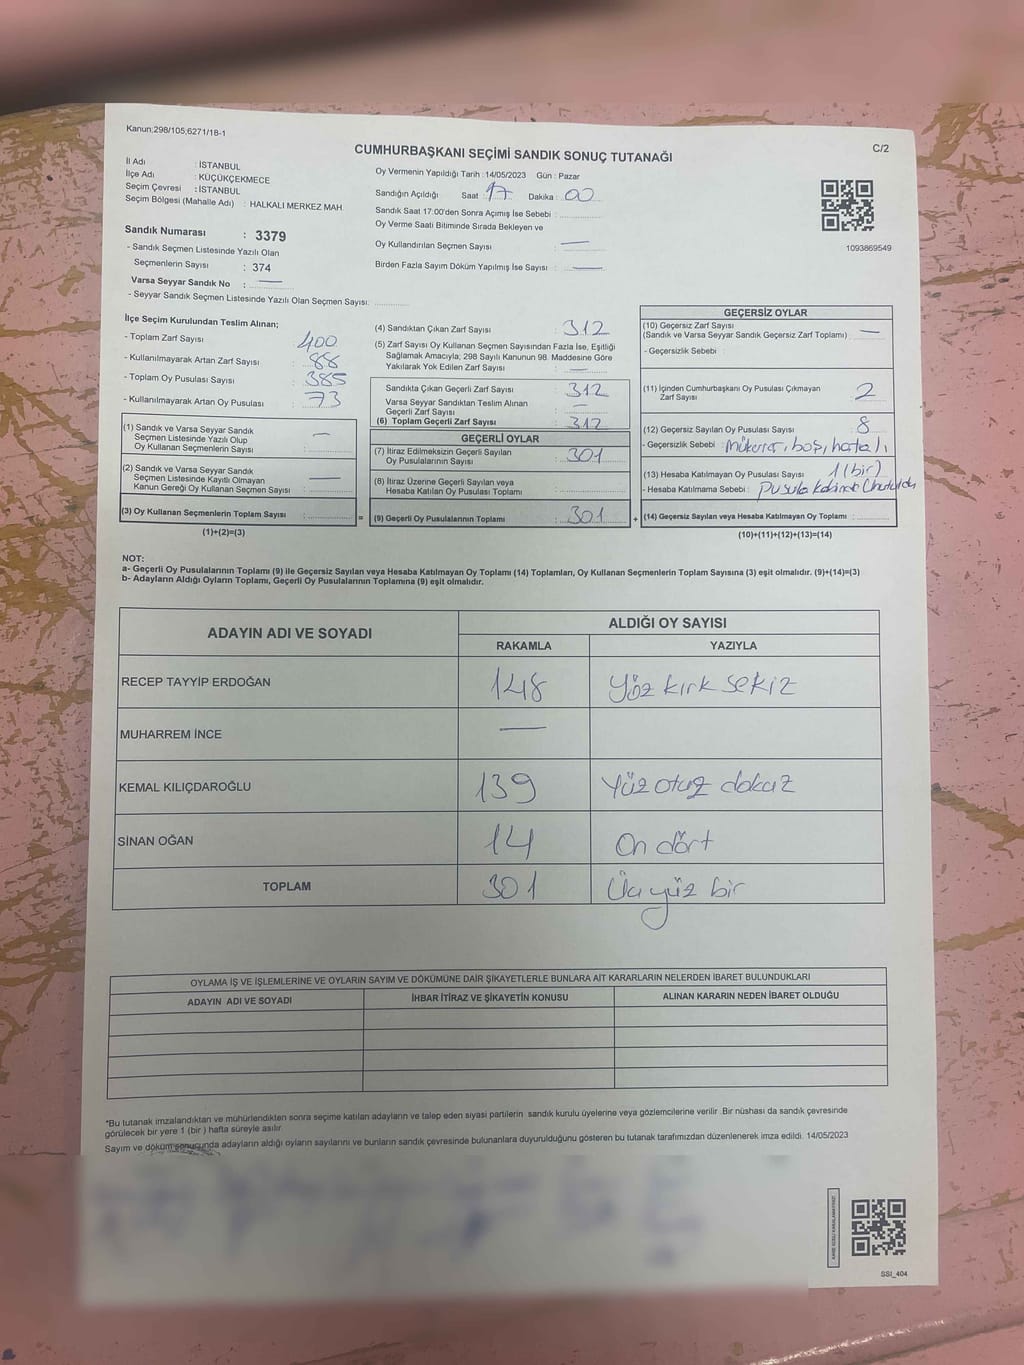 Kanun;298/105;6271/18-1
C/2
CUMHURBAŞKANI SEÇİMİ SANDIK SONUÇ TUTANAĞI
İl Adı : İSTANBUL
İlçe Adı : KÜÇÜKÇEKMECE
Seçim Çevresi : İSTANBUL
Seçim Bölgesi (Mahalle Adı) : HALKALI MERKEZ MAH.
Sandık Numarası : 3379
- Sandık Seçmen Listesinde Yazılı Olan
Seçmenlerin Sayısı : 374
Varsa Seyyar Sandık No : —
- Seyyar Sandık Seçmen Listesinde Yazılı Olan Seçmen Sayısı:
Oy Vermenin Yapıldığı Tarih : 14/05/2023 Gün : Pazar
Sandığın Açıldığı Saat : 17 Dakika : 00
Sandık Saat 17:00'den Sonra Açımış İse Sebebi :
Oy Verme Saati Bitiminde Sırada Bekleyen ve
Oy Kullandırılan Seçmen Sayısı —
Birden Fazla Sayım Döküm Yapılmış İse Sayısı : —
1093869549
İlçe Seçim Kurulundan Teslim Alınan;
- Toplam Zarf Sayısı : 400
- Kullanılmayarak Artan Zarf Sayısı : 88
- Toplam Oy Pusulası Sayısı : 385
- Kullanılmayarak Artan Oy Pusulası : 73
(1) Sandık ve Varsa Seyyar Sandık
Seçmen Listesinde Yazılı Olup
Oy Kullanan Seçmenlerin Sayısı : —
(2) Sandık ve Varsa Seyyar Sandık
Seçmen Listesinde Kayıtlı Olmayan
Kanun Gereği Oy Kullanan Seçmen Sayısı : —
(3) Oy Kullanan Seçmenlerin Toplam Sayısı :
(1)+(2)=(3)
=
(4) Sandıktan Çıkan Zarf Sayısı : 312
(5) Zarf Sayısı Oy Kullanan Seçmen Sayısından Fazla İse, Eşitliği
Sağlamak Amacıyla; 298 Sayılı Kanunun 98. Maddesine Göre
Yakılarak Yok Edilen Zarf Sayısı : —
Sandıkta Çıkan Geçerli Zarf Sayısı : 312
Varsa Seyyar Sandıktan Teslim Alınan
Geçerli Zarf Sayısı : —
(6) Toplam Geçerli Zarf Sayısı : 312
GEÇERLİ OYLAR
(7) İtiraz Edilmeksizin Geçerli Sayılan
Oy Pusulalarının Sayısı : 301
(8) İtiraz Üzerine Geçerli Sayılan veya
Hesaba Katılan Oy Pusulası Toplamı :
(9) Geçerli Oy Pusulalarının Toplamı : 301
+
GEÇERSİZ OYLAR
(10) Geçersiz Zarf Sayısı
(Sandık ve Varsa Seyyar Sandık Geçersiz Zarf Toplamı) : —
- Geçersizlik Sebebi :
(11) İçinden Cumhurbaşkanı Oy Pusulası Çıkmayan
Zarf Sayısı : 2
(12) Geçersiz Sayılan Oy Pusulası Sayısı : 8
- Geçersizlik Sebebi : mükerrer, boş, hatalı
(13) Hesaba Katılmayan Oy Pusulası Sayısı : 1 (bir)
- Hesaba Katılmama Sebebi : pusula unutuldu
(14) Geçersiz Sayılan veya Hesaba Katılmayan Oy Toplamı :
(10)+(11)+(12)+(13)=(14)
NOT:
a- Geçerli Oy Pusulalarının Toplamı (9) ile Geçersiz Sayılan veya Hesaba Katılmayan Oy Toplamı (14) Toplamları, Oy Kullanan Seçmenlerin Toplam Sayısına (3) eşit olmalıdır. (9)+(14)=(3)
b- Adayların Aldığı Oyların Toplamı, Geçerli Oy Pusulalarının Toplamına (9) eşit olmalıdır.
ADAYIN ADI VE SOYADI ALDIĞI OY SAYISI
RAKAMLA YAZIYLA
RECEP TAYYİP ERDOĞAN 148 Yüz kırk sekiz
MUHARREM İNCE —
KEMAL KILIÇDAROĞLU 139 Yüz otuz dokuz
SİNAN OĞAN 14 On dört
TOPLAM 301 Üç yüz bir
OYLAMA İŞ VE İŞLEMLERİNE VE OYLARIN SAYIM VE DÖKÜMÜNE DAİR ŞİKAYETLERLE BUNLARA AİT KARARLARIN NELERDEN İBARET BULUNDUKLARI
ADAYIN ADI VE SOYADI İHBAR İTİRAZ VE ŞİKAYETİN KONUSU ALINAN KARARIN NEDEN İBARET OLDUĞU
*Bu tutanak imzalandıktan ve mühürlendikten sonra seçime katılan adayların ve talep eden siyasi partilerin sandık kurulu üyelerine veya gözlemcilerine verilir. Bir nüshası da sandık çevresinde
görülecek bir yere 1 (bir ) hafta süreyle asılır.
Sayım ve döküm sonucunda adayların aldığı oyların sayılarını ve bunların sandık çevresinde bulunanlara duyurulduğunu gösteren bu tutanak tarafımızdan düzenlenerek imza edildi. 14/05/2023
SSI_404